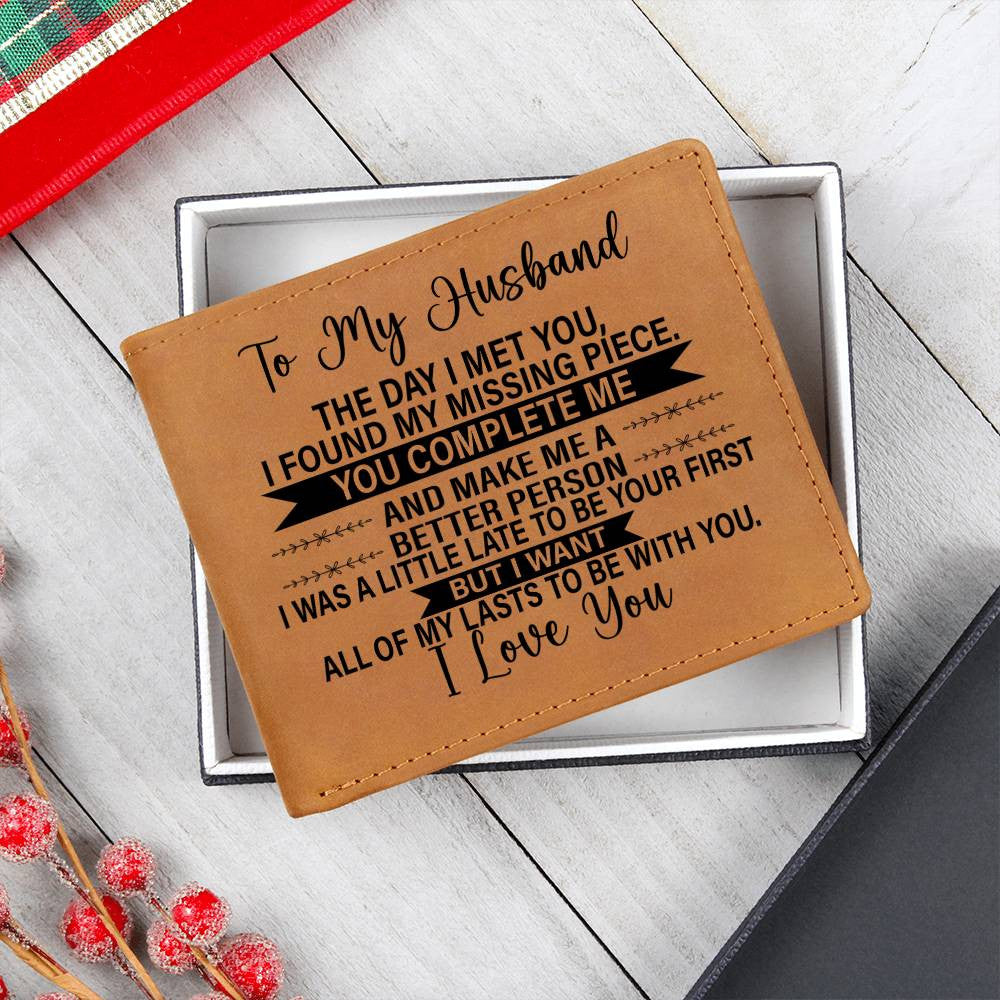 To My Husband
THE DAY I MET YOU,
I FOUND MY MISSING PIECE.
YOU COMPLETE ME
AND MAKE ME A
BETTER PERSON
I WAS A LITTLE LATE TO BE YOUR FIRST
BUT I WANT
ALL OF MY LASTS TO BE WITH YOU.
I Love You